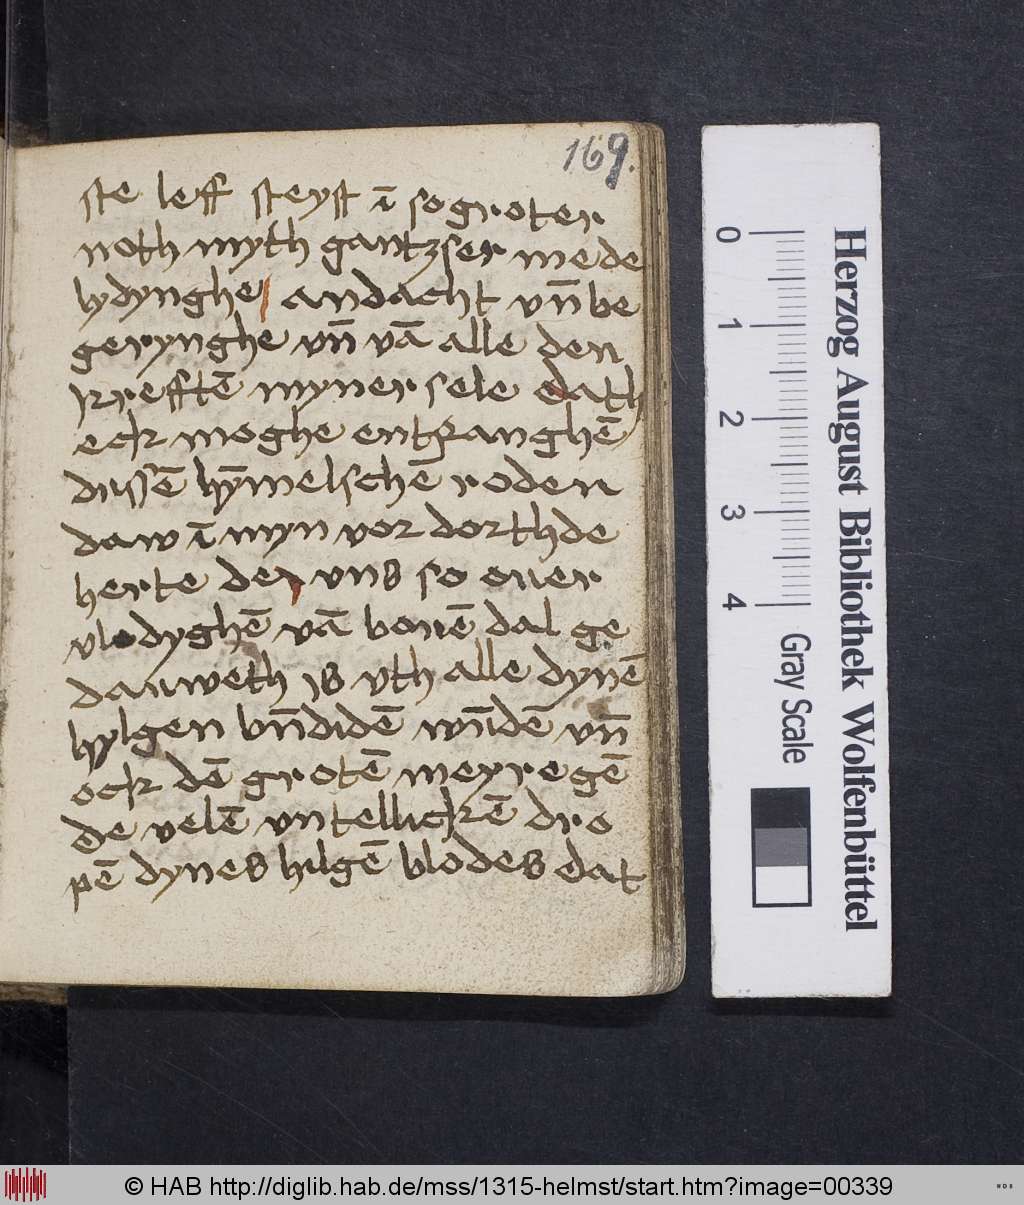 169.
ste leff steyst ī so groter
noth myth gantzser mede
lydynghe andacht vn̄ be
gerynghe vn̄ vā alle den
krefftē myner sele dath
eck moghe entfanghē
dussē hȳmelschē roden
daw ī myn vor dorthde
herte der vns so ouer
vlodyghē vā bouē dal ge
dauweth is vth alle dynē
hylgen bn̄didē wn̄dē vn̄
ock dē grotē meyregē
de velē vntellickē dro
pē dynes hilgē blodes dat
0
1
2
3
4
Gray Scale
Herzog August Bibliothek Wolfenbüttel
© HAB http://diglib.hab.de/mss/1315-helmst/start.htm?image=00339